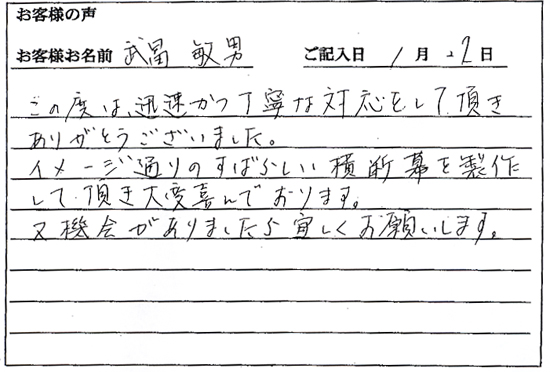 お客様の声
お客様お名前 武冨 敏男 ご記入日 1月22日
この度は、迅速かつ丁寧な対応をして頂き
ありがとうございました。
イメージ通りのすばらしい横断幕を製作
して頂き大変喜んでおります。
又機会がありましたら宜しくお願いします。